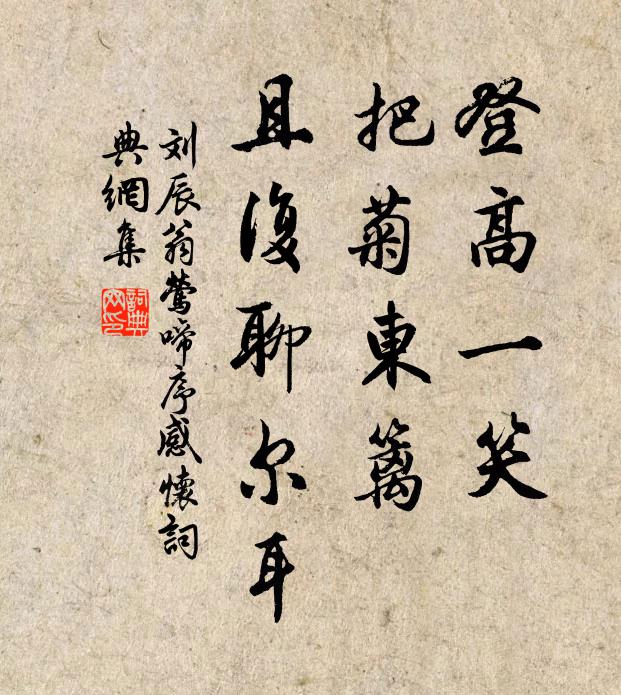 登高一笑
把菊東篱
且復聊尔耳
刘辰翁莺啼序感懷詞
典網集
詞典
网印